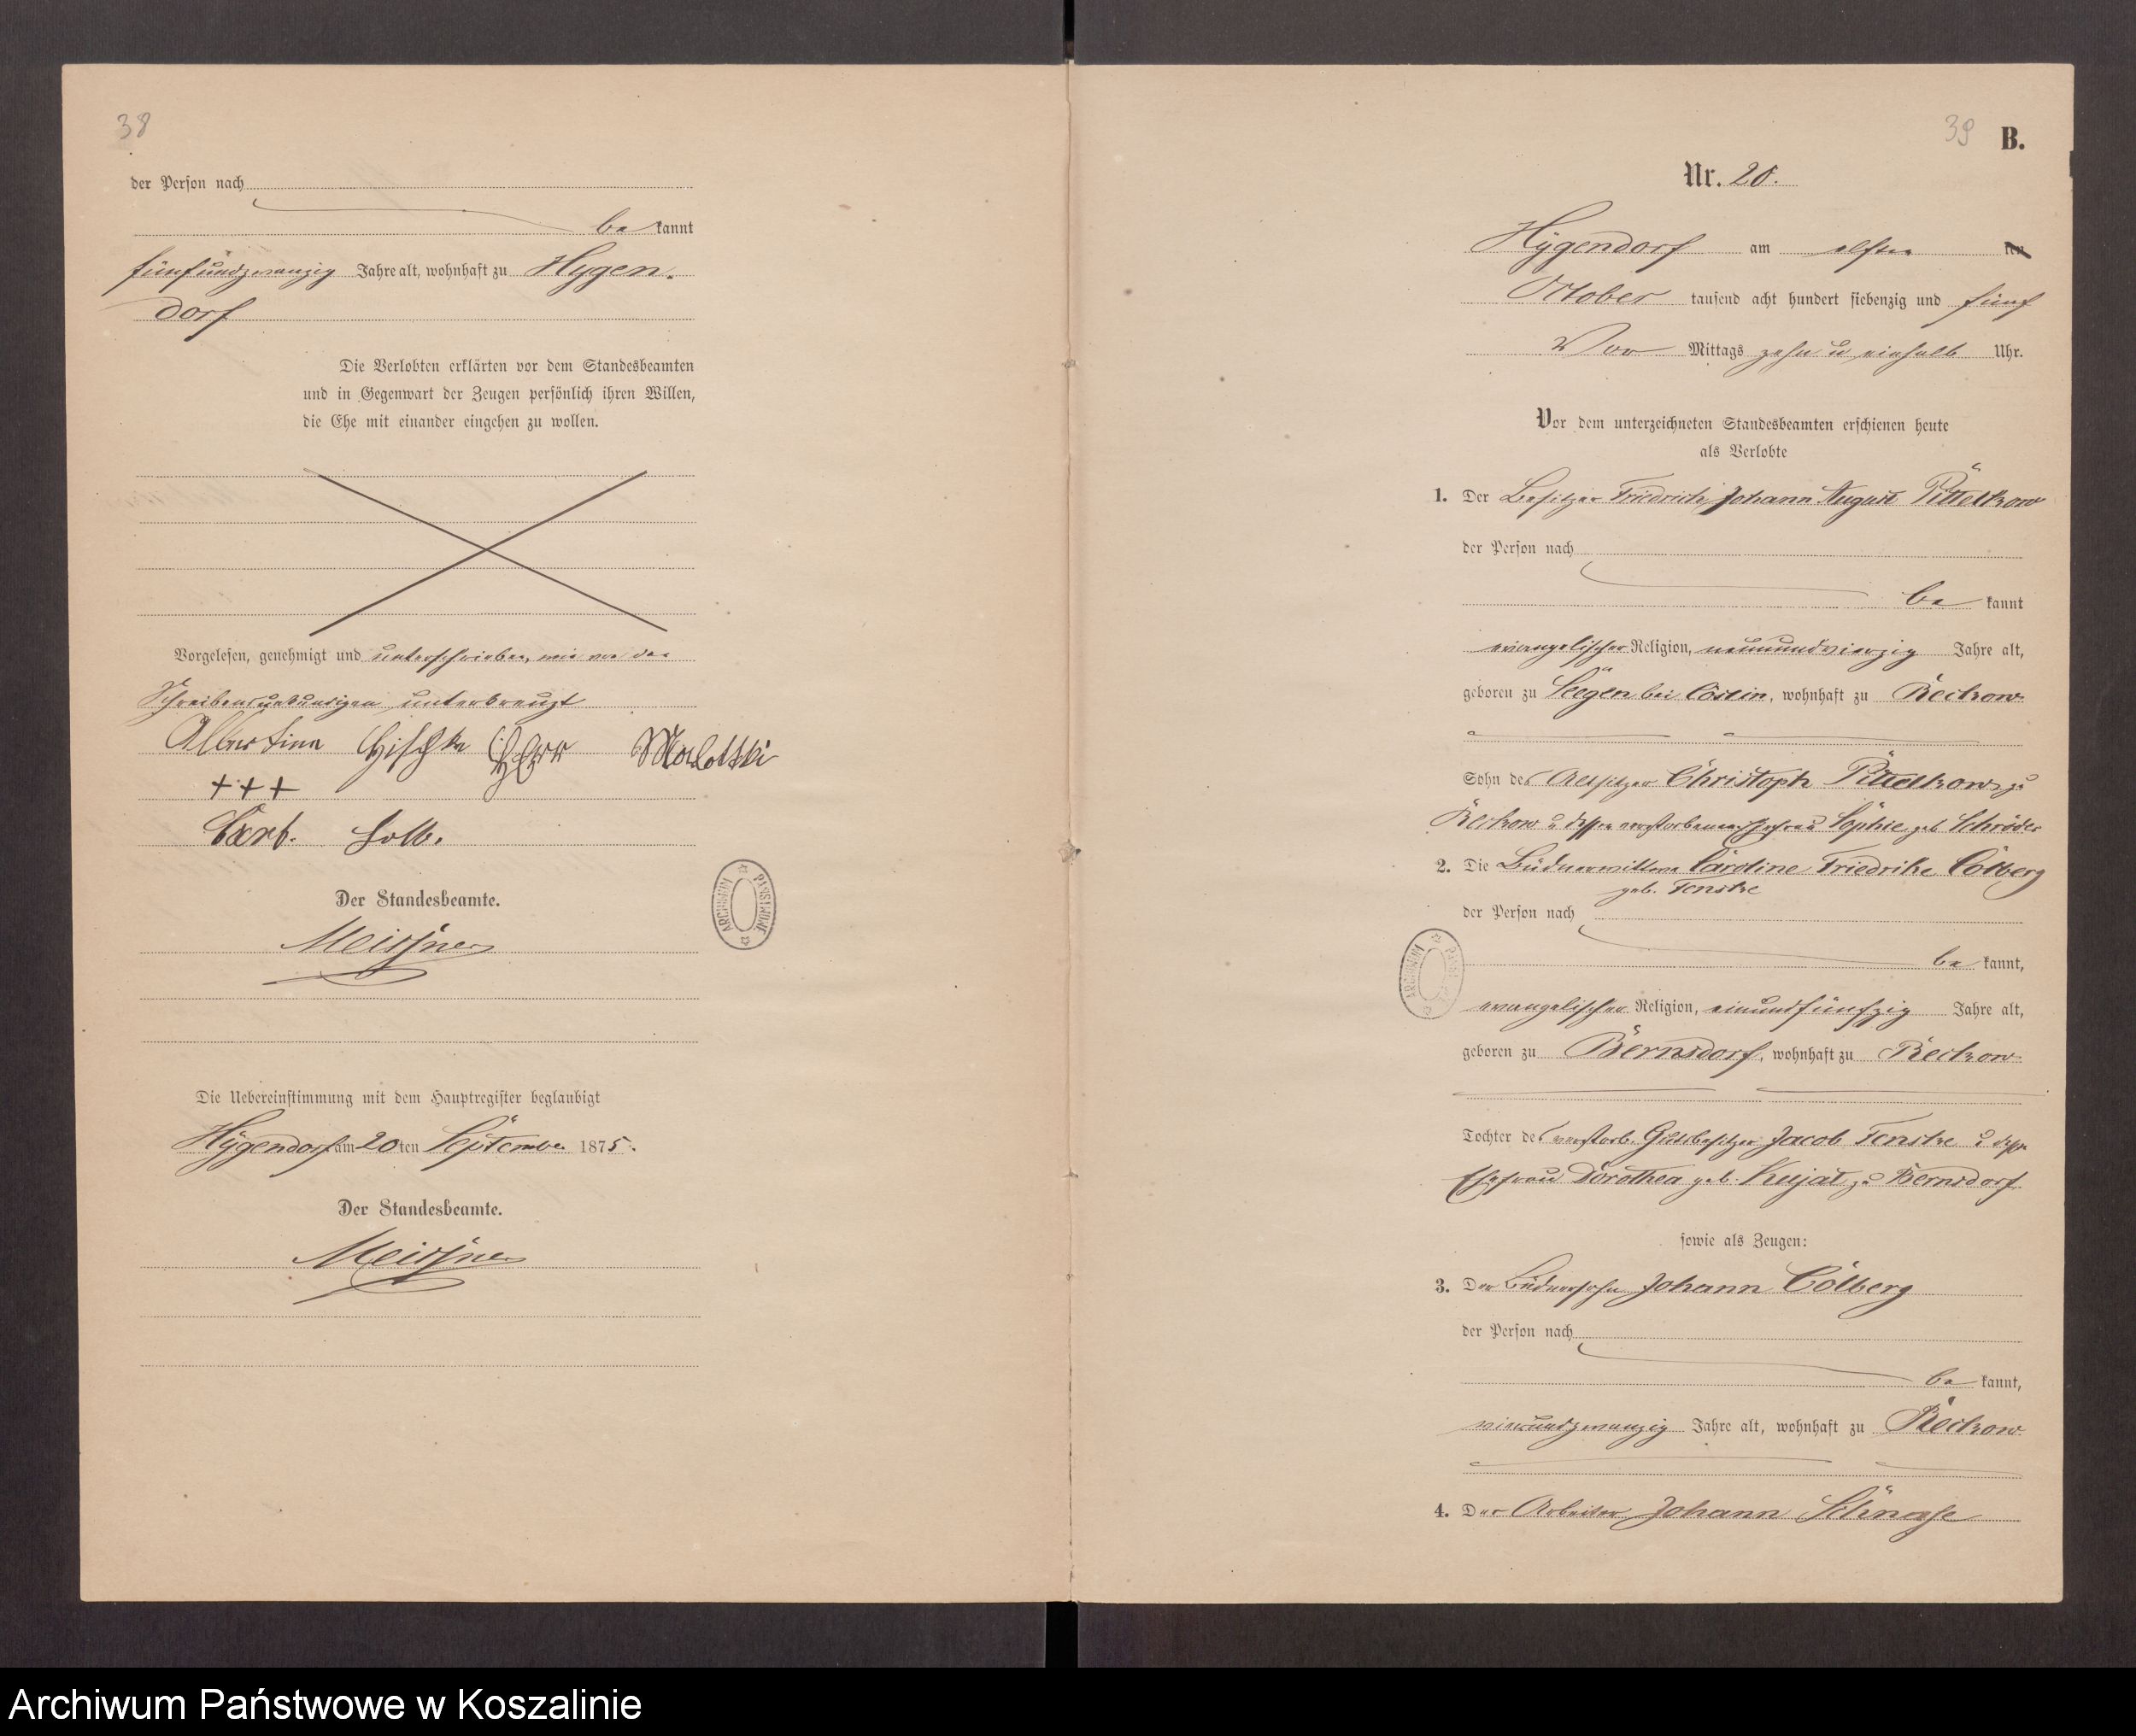 38
der Person nach
be kannt
fünfundzwanzig Jahre alt, wohnhaft zu Hygen-
dorf
Die Verlobten erklärten vor dem Standesbeamten
und in Gegenwart der Zeugen persönlich ihren Willen,
die Ehe mit einander eingehen zu wollen.
Vorgelesen, genehmigt und unterschrieben, wie von der
Schreibensunkundigen unterkreuzt
Albertine
+++
Der Standesbeamte.
Meissner
Die Uebereinstimmung mit dem Hauptregister beglaubigt
Hygendorf am 20 ten September 1875.
Der Standesbeamte.
Meissner
ARCHIWUM PAŃSTWOWE
39 B.
Nr. 20.
Hygendorf am elften ten
October tausend acht hundert siebenzig und fünf
Vor Mittags zehn u einhalb Uhr.
Vor dem unterzeichneten Standesbeamten erschienen heute
als Verlobte
1. Der Besitzer Friedrich Johann August Pittelkow
der Person nach
be kannt
evangelischer Religion, neunundvierzig Jahre alt,
geboren zu Seegen bei Cöslin, wohnhaft zu Reckow
Sohn des Altsitzer Christoph Pittelkow zu
Reckow u dessen verstorbenen Ehefrau Sophie geb Schröder
2. Die Büdnerwittwe Caroline Friedrike Colberg
geb. Tenske
der Person nach
be kannt,
evangelischer Religion, einundfünfzig Jahre alt,
geboren zu Bernsdorf, wohnhaft zu Reckow
Tochter des verstorb. Gutsbesitzer Jacob Tenske u dessen
Ehefrau Dorothea geb. Kujat zu Bernsdorf
sowie als Zeugen:
3. Der Büdnersohn Johann Colberg
der Person nach
be kannt,
vierundzwanzig Jahre alt, wohnhaft zu Reckow
4. Der Arbeiter Johann Schnase
ARCHIWUM PAŃSTWOWE
Archiwum Państwowe w Koszalinie